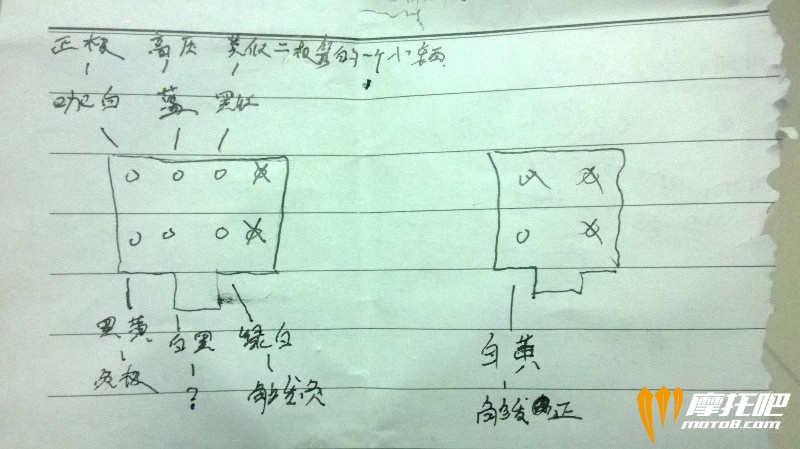 正极 高压 类似二极管的一个小东西
咖白 蓝 黑红
黑黄 白黑 绿白
负极 ? 触发负
白黄
触发 正
摩托吧
moto8.com